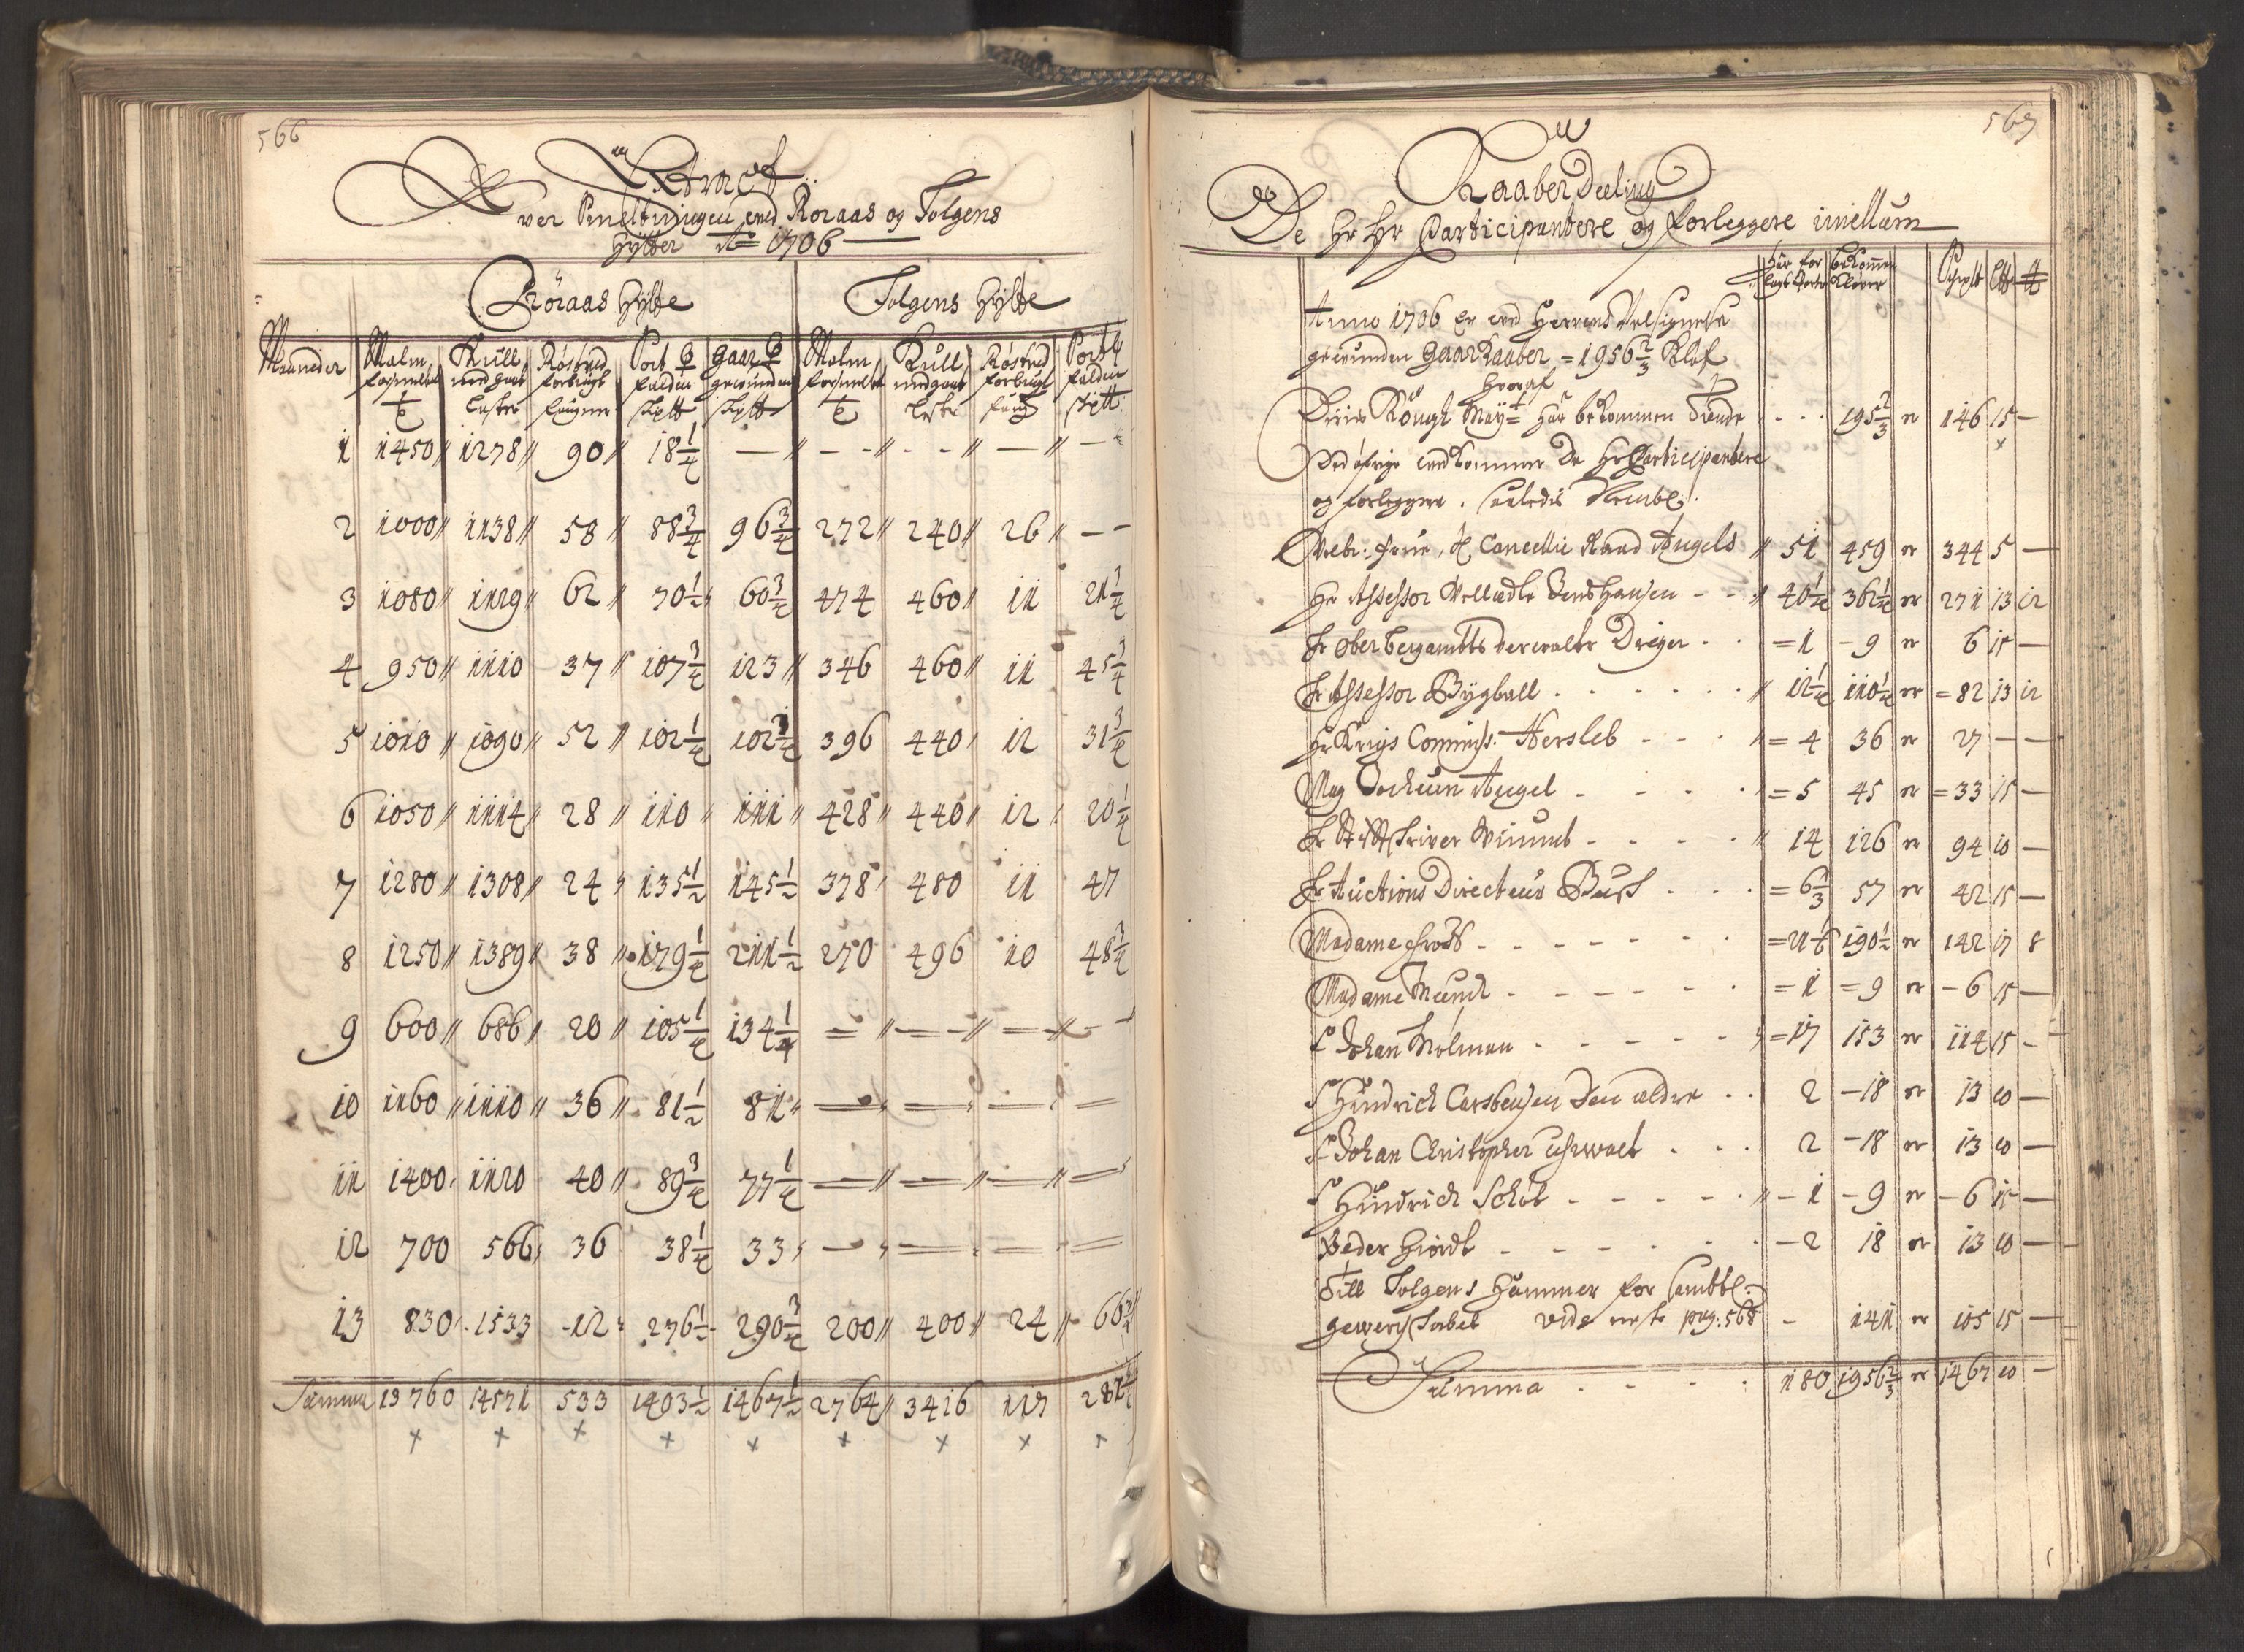 566
Extract
Over Smeltningen ved Röraas og Tolgens
Hytter Ao 1706
Röraas Hytte Tolgens Hytte
Maaneder Malm Kull Röstved Sort ♀ Gaar ♀ Malm Kull Röstved Sort ♀
forsmelt medgaar forbrugt falden gewunden forsmelt medgaar forbrugt falden
Lester faugner
1 1450 1278 90 18 1/4 — — — — —
2 1000 1138 58 88 3/4 96 3/4 272 240 26 —
3 1080 1129 62 70 1/2 60 3/4 474 460 11 21 1/4
4 950 1110 37 107 3/4 123 346 460 11 45 3/4
5 1010 1090 52 102 1/4 102 3/4 396 440 12 31 3/4
6 1050 1114 28 110 111 428 440 12 20 1/4
7 1280 1308 24 135 1/2 145 1/2 378 480 11 47
8 1250 1389 38 179 1/4 211 1/2 270 496 10 48 3/4
9 600 686 20 105 1/4 134 1/4 — — — —
10 1160 1110 36 81 1/2 81 — — — —
11 1400 1120 40 89 3/4 77 1/4 — — — —
12 700 566 36 38 1/4 33 — — — —
13 830 1533 12 276 1/2 290 3/4 200 400 24 66
Summa 13760 14571 533 1403 1/2 1467 1/2 2764 3416 117 281
567
Kaaber Deeling
De Hr Hr Participantere og Forleggere imellum
Har for bekommer
lags Parter Kløver
Anno 1706 er ved Herrens Velsignelse
gewunden Gaar Kaaber = 1956 2/3 Kløf
Hvoraf
Deris Kongl May:t har bekommen Tiende - - - 195 2/3 er 146 15 —
Det øfrige vedkommer De Hr Participantere
og Forleggere. saaledis Nembl:
Velb: frue Cancellie Raad Angels 51 459 er 344 5 —
Hr Assessor Velædle Benshausen - - 40 1/4 362 1/4 er 271 13 12
Hr Ober bergambts verwalter Dreyer - - = 1 - 9 er 6 15 —
Hr Assessor Bÿgball - - - - 12 1/4 110 1/4 er = 82 13 12
Hr Krigs Commiss: Hersleb - - - = 4 36 er 27 — —
Mag Jochum Angel - - - - = 5 45 er = 33 15 —
Hr Stiftskriver Wiumb - - - - 14 126 er 94 10 —
Hr Auctions Directeur Busch - - - = 6 1/3 57 er 42 15 —
Madame - - - - - = 21 1/6 190 1/2 er 142 17 8
Madame Munch - - - - - = 1 = 9 er - 6 15 —
Sr Johan Molman - - - - - = 17 153 er 114 15 -
Sr Hindrich Carstensen Den ældre - - 2 - 18 er 13 10 —
Sr Johan Christopher - - - 2 - 18 er 13 10 —
Sr Hindrich Schöt - - - - - - 1 - 9 er - 6 15 —
Peder Hiördt - - - - - - - 2 18 er 13 10 —
Till Tolgens Hammer for sambtl:
gewerschabet vide neste pag: 568 - 141 er 105 15 —
Summa - - - - 180 1956 2/3 er 1467 10 —